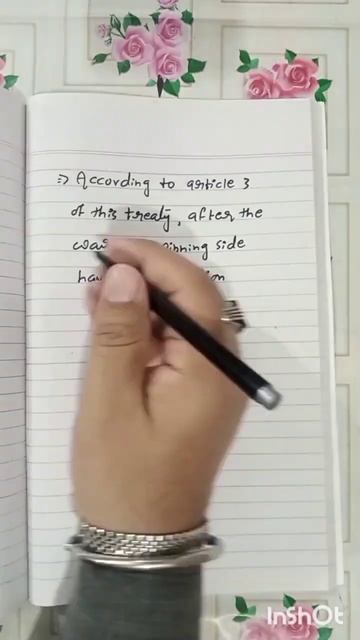 => According to article 3
of this treaty, after the
winning side
InShOt